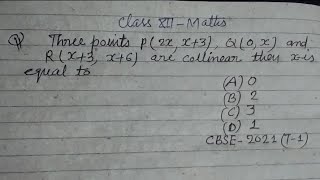 Class XII - Maths
Q) Three points P(2x, x+3), Q(0, x) and
R(x+3, x+6) are collinear then x is
equal to
(A) 0
(B) 2
(C) 3
(D) 1
CBSE-2021 (T-1)